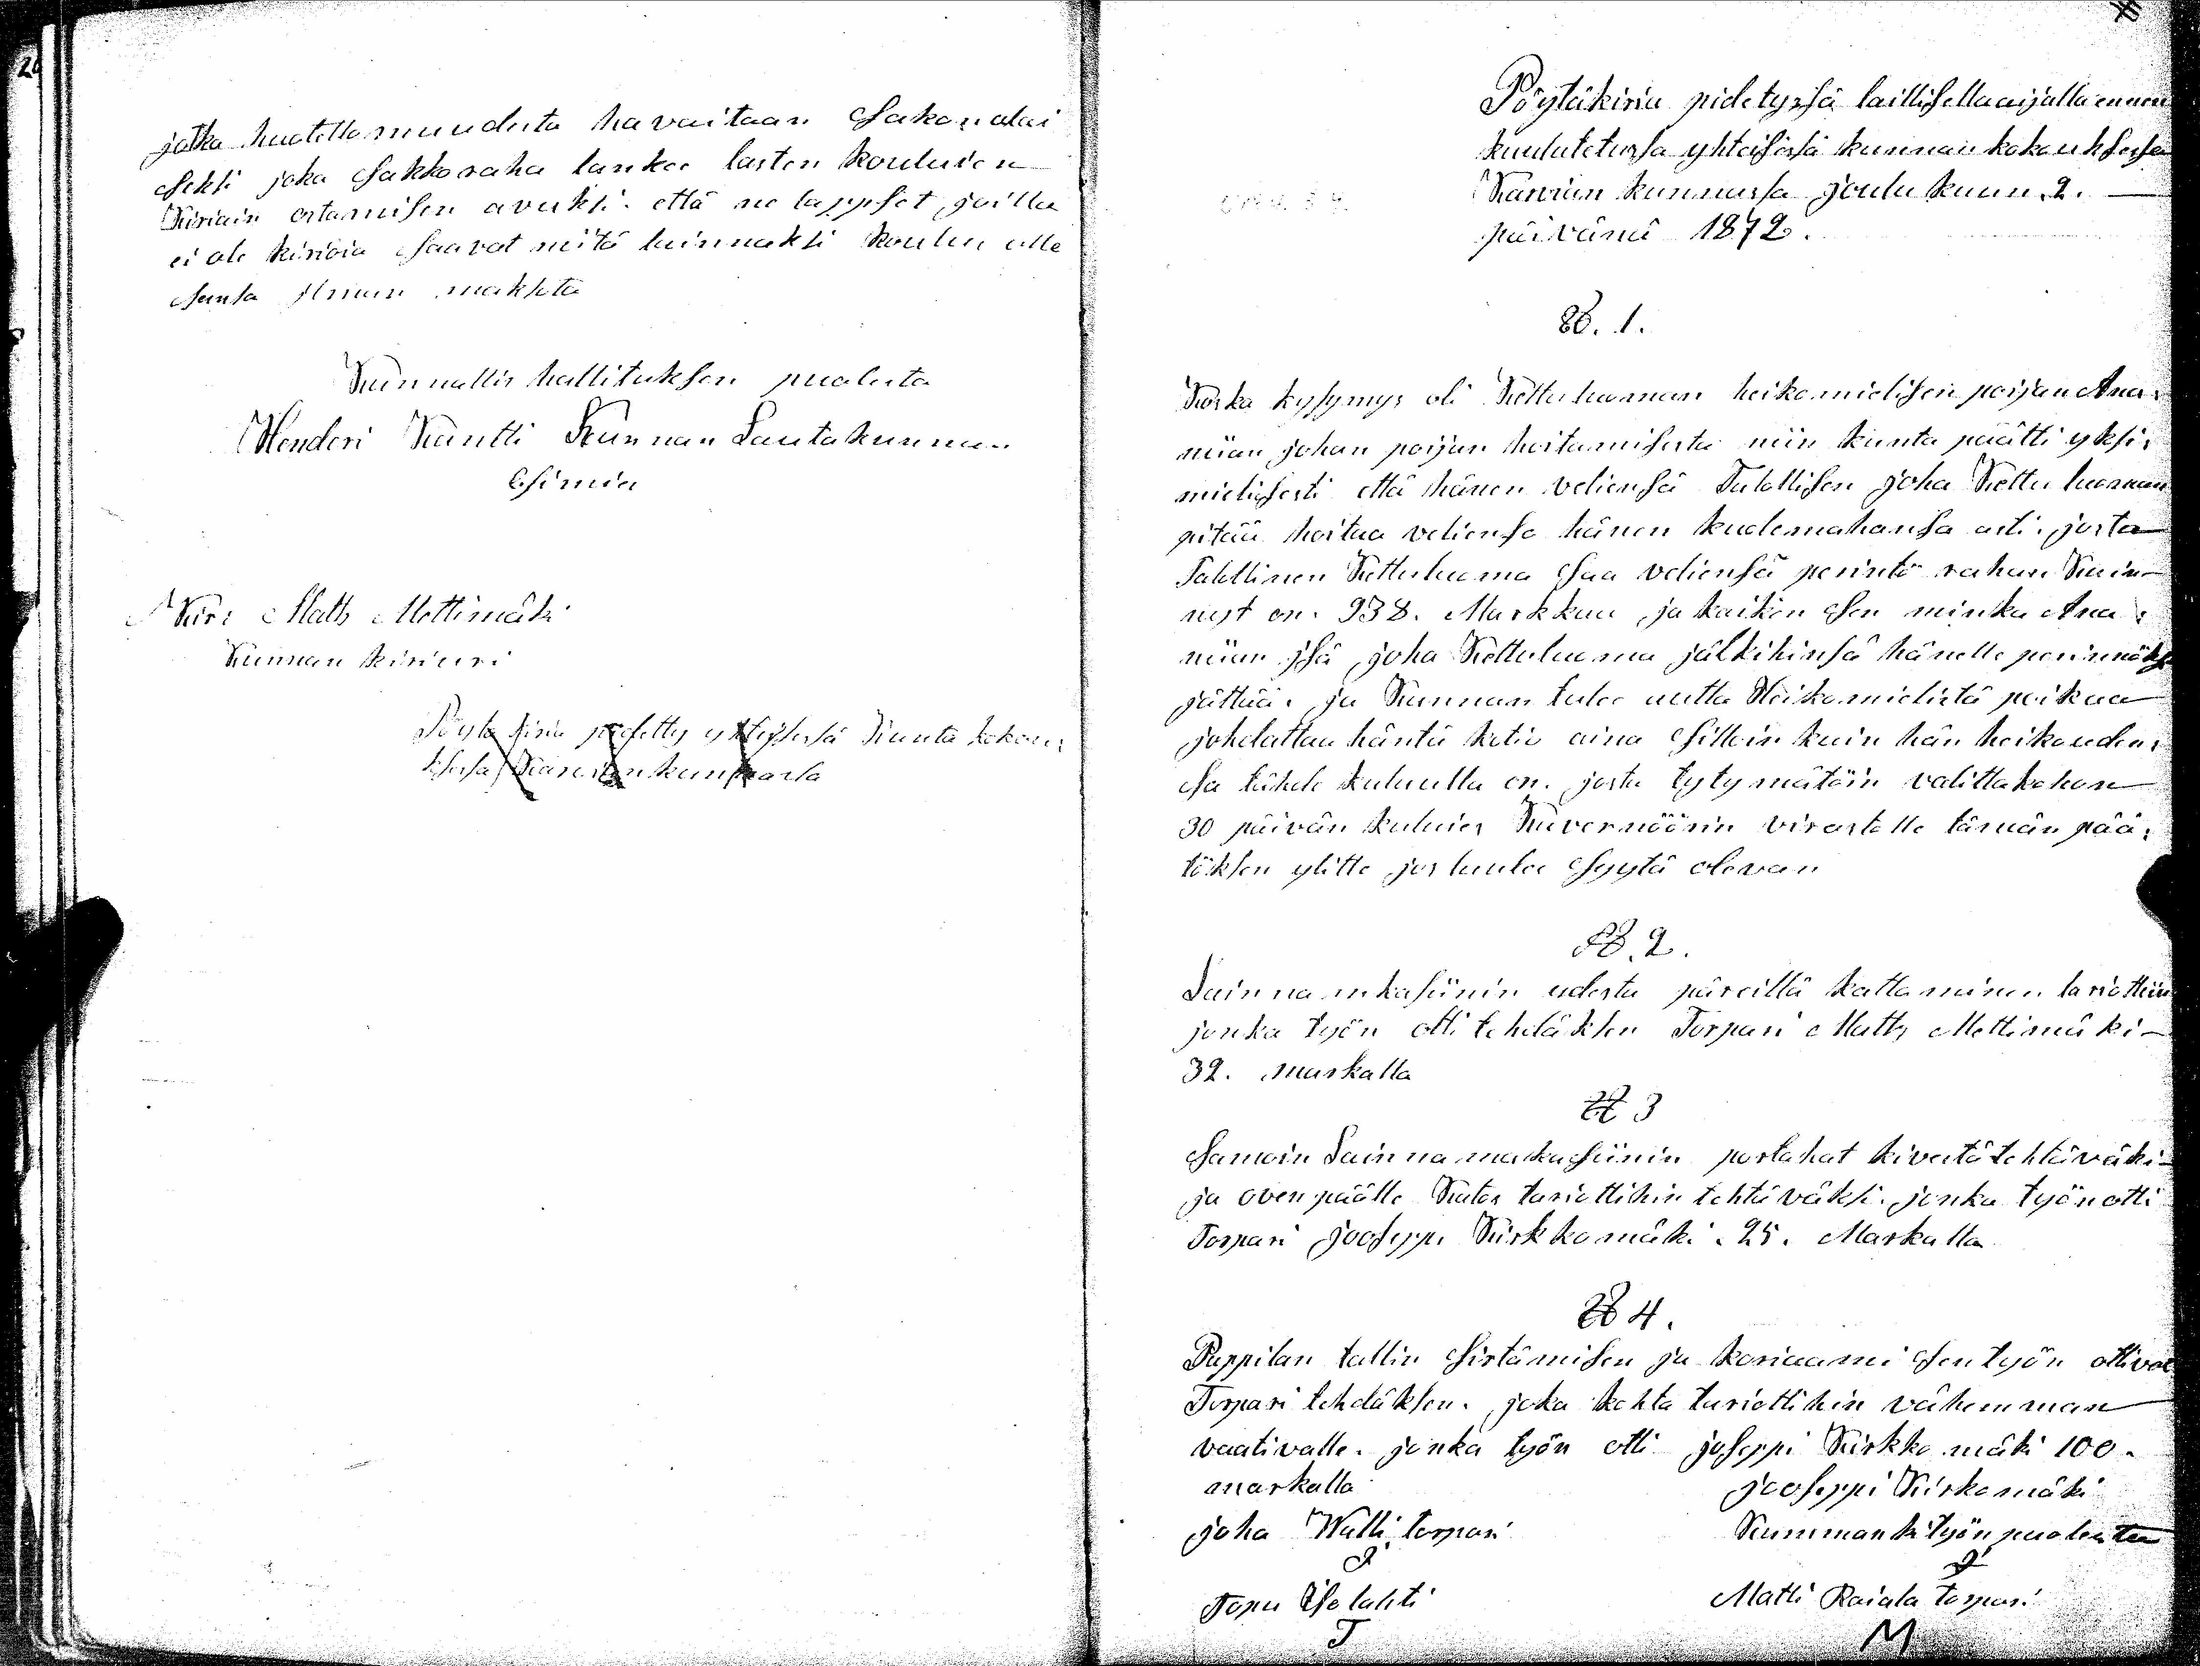 26
jotka huolettomuudesta havaitaan Sakon alai
seksi joka Sakkoraha lankee lasten koulujen
Kiriain ostamisen avuksi. että ne lappset joilla
ei ole kirioia saavat niitä lainnaksi koulun olle
essansa ilman maksota
Kunnallis hallituksen puolesta
Henderi Käntti Kunnan Lautakunnan
Esimia
Kiri Matts Mettimäki
Kunnan kiriuri
Pöytäkiria pidetty yhteisessä Kunta kokou:
ksessa Karvian kunnassa
Pöytäkiria pidetyssä laillisella aijalla ennen
kuulutetussa yhteisessä kunnan kokouksessa
Karvian kunnassa joulukuun. 2. —
päivänä 1872.
§. 1.
Koska kysymys oli Kettuluoman heikomielisen poijan Ana:
niian johan poijan hoitamisesta niin kunta päätti yksi:
mielisesti että hänen veliensä Talollisen Joha Kettuluoman
pitää hoitaa veliensä hänen kuolemahansa asti. josta
Talollinen Kettuluoma saa veliensä perintö rahan Kuin
nyt on. 938. Markkaa, ja kaiken sen minkä Ana:
niian isä joha Kettuluoma jälkihinsä hänelle perinnöksi
jättää. ja Kunnan tulee autta Heikomielistä poikaa
johdattaa häntä kotio aina silloin kuin hän heikouden:
sa tähde kuluulla on. josta tytymätöin valittakohon
30 päivän kuluies Kuvernöörin virastolle tämän pää:
töksen ylitte jos luulee syytä olevan
§. 2.
Lainna mkasiinin udesta päreillä kattaminen tariottiin
jonka työn otti tehdäksen Torpari Matts Mettimäki –
32. markalla
§ 3
Samoin Lainna makasiinin portahat kivestä tehtäväksi –
ja oven päälle Katos tariottihin tehtäväksi. jonka työn otti
Torpari Jooseppi Kirkkomäki. 25. Markalla
§ 4.
Pappilan tallin siirtämisen ja koriaami sen työn ottivat
Torpari tehdäksen. joka kohta tariottihin vähemman
vaativalle. jonka työn otti joseppi Kirkkomäki 100.
markalla
Jooseppi Kirkomäki
joha Wälli torpari
Kummanki työn puolesta
Topu Isolahti
Matti Raiala torpari
T
M